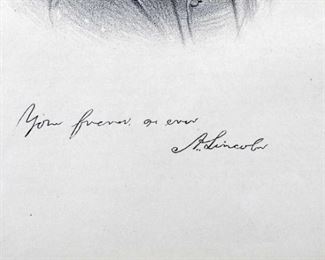 Your friend, as ever
A. Lincoln